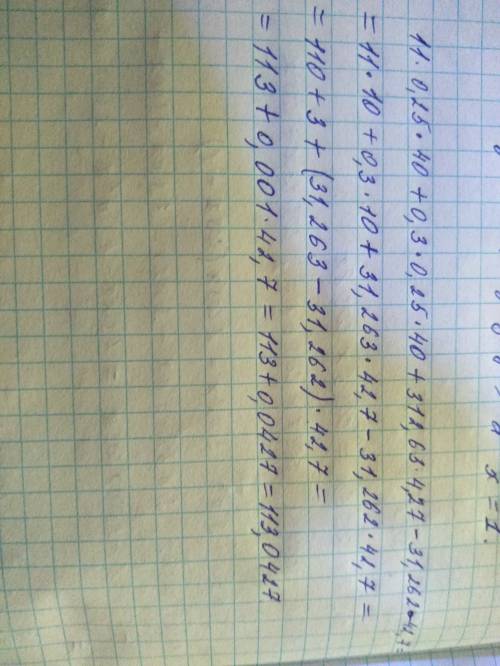 x = 1.
11·0,25·40+0,3·0,25·40+312,63·4,27-31,262·42,7=
=11·10+0,3·10+31,263·42,7-31,262·42,7=
=110+3+(31,263-31,262)·42,7=
=113+0,001·42,7=113+0,0427=113,0427